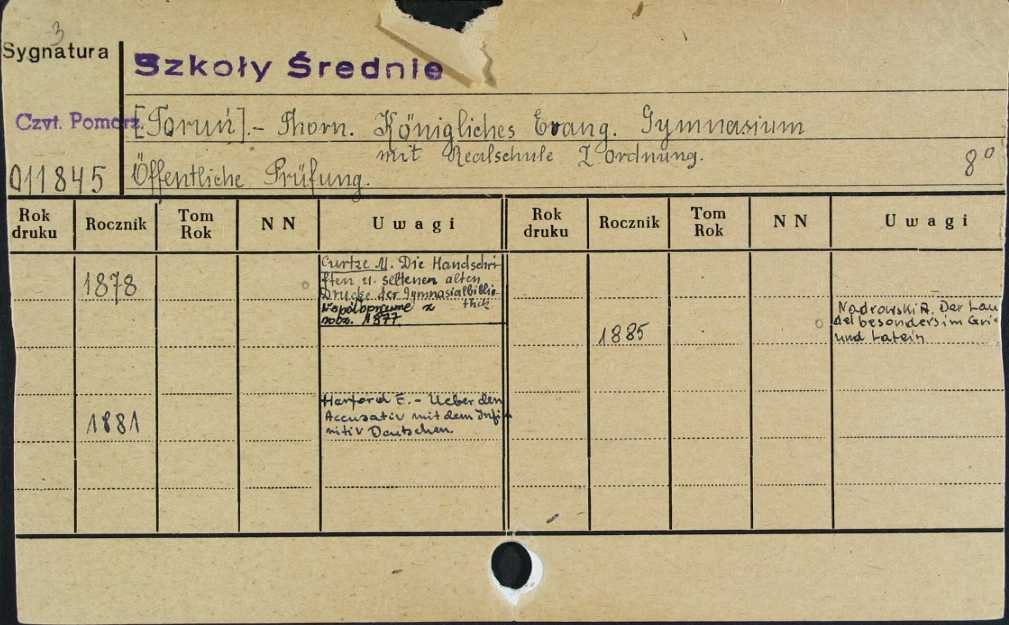 3
Sygnatura
Szkoły Średnie
Czyt. Pomorz.
[Toruń].- Thorn. Königliches Evang. Gymnasium
mit Realschule I ordnung.
8°
011845
Öffentliche Prüfung.
Rok druku Rocznik Tom Rok N N Uwagi Rok druku Rocznik Tom Rok N N Uwagi
1878
Curtze M. Die Handschri-
ften u. seltenen alten
Drucke der Gymnasialbiblio-
thek
Współoprawne z
1877
1885
Nadrowski R. Der Lau
besonders im Gri-
und Latein
1881
Harford E. - Ueber den
Accusativ mit dem Infi-
nitiv Deutschen.